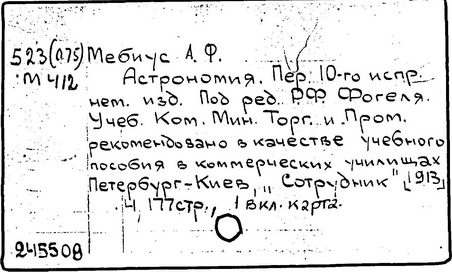 523(075) Мебиус А. Ф.
М 412 Астрономия. Пер. 10-го испр.
нем. изд. Под ред. Р.Ф. Фогеля.
Учеб. Ком. Мин. Торг. и Пром.
рекомендовано в качестве учебного
пособия в коммерческих училищах
Петербург-Киев, „Сотрудник" [1913]
4, 177стр., 1 вкл. карта.
2415508